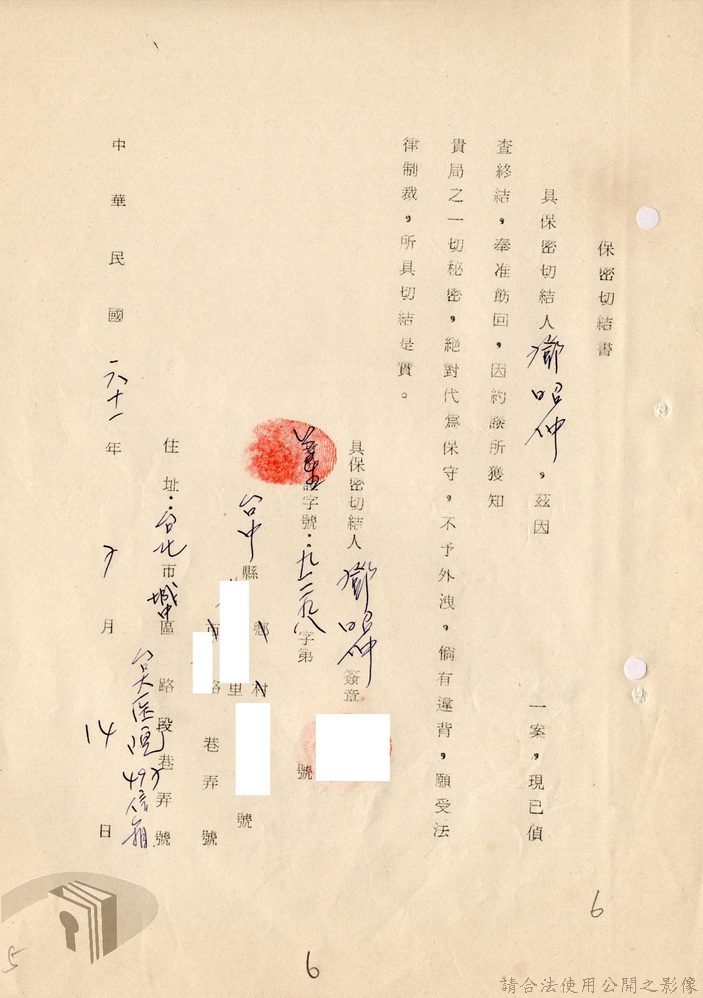 保密切結書
具保密切結人鄧昭仲，茲因 一案，現已偵
查終結，奉准飭回，因約談所獲知
貴局之一切秘密，絕對代為保守，不予外洩，倘有違背，願受法
律制裁，所具切結是實。
具保密切結人鄧昭仲簽章
證字號： 字第 號
台中縣 鄉 村
里 號
市 路 巷 弄 號
住址：台北市城中區 路 段 巷 弄 號
台大医院 信箱
中華民國六十一年 月 14 日
6
6
5
請合法使用公開之影像